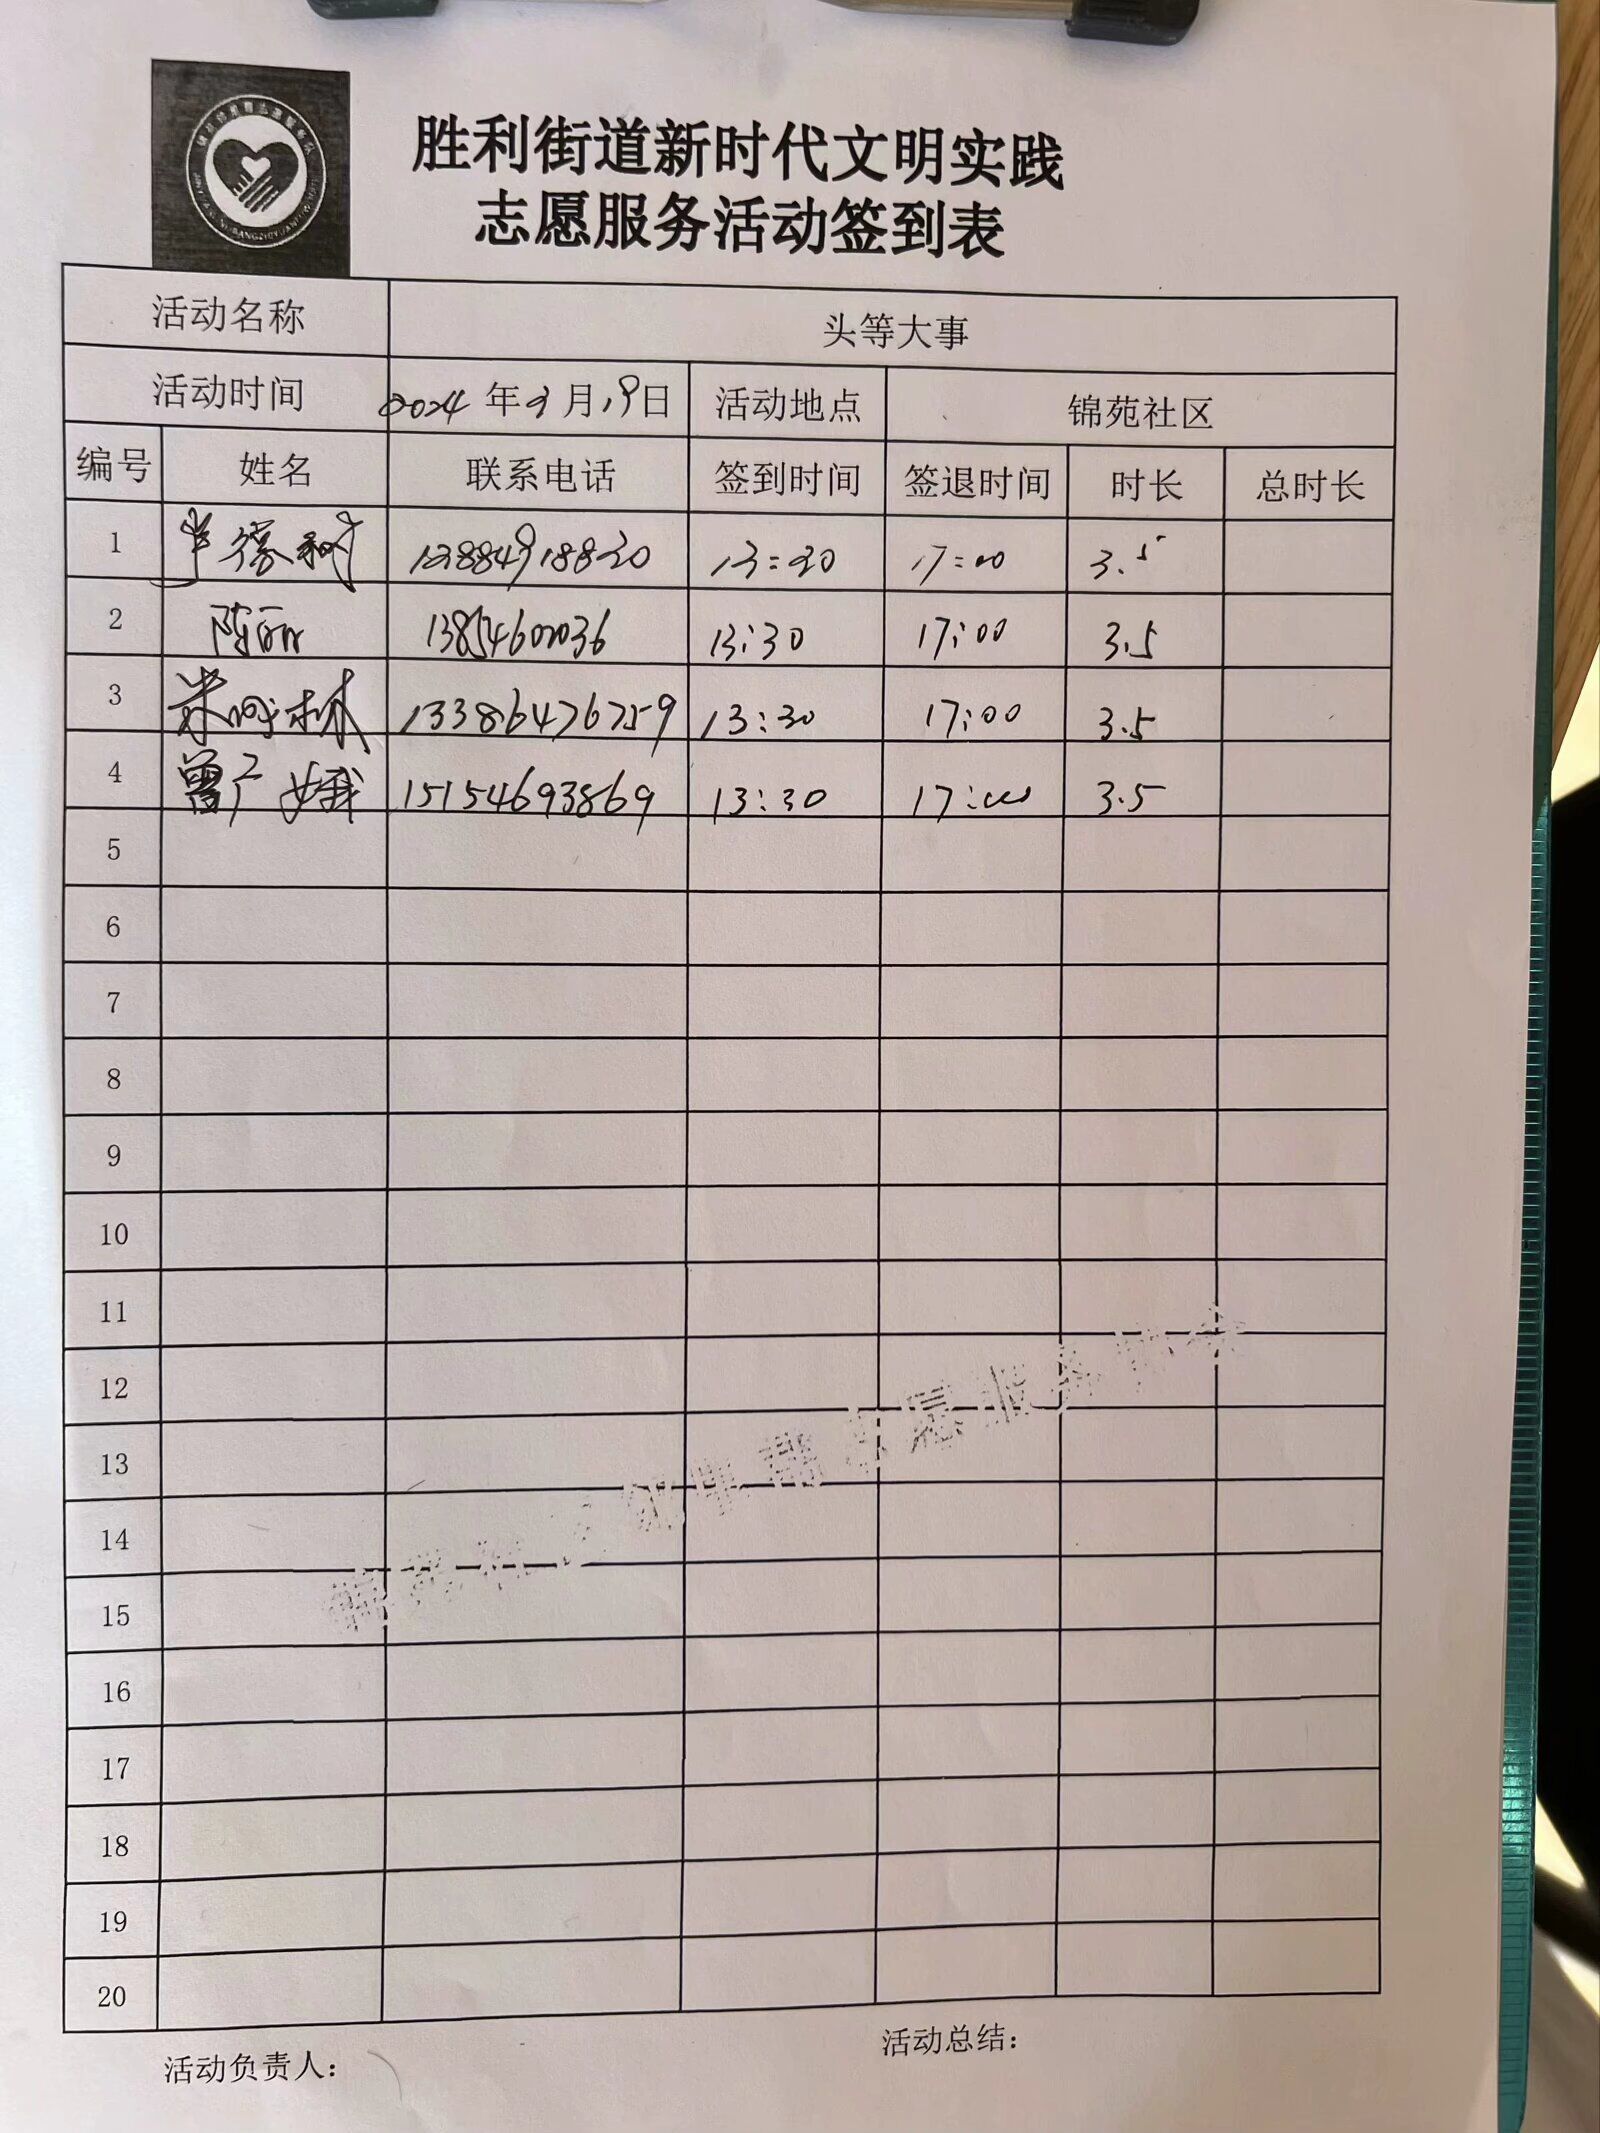 胜利街道新时代文明实践
志愿服务活动签到表
活动名称 头等大事
活动时间 2024年3月19日 活动地点 锦苑社区
编号 姓名 联系电话 签到时间 签退时间 时长 总时长
1 13884918830 13:30 17:00 3.5
2 陈丽 13:30 17:00 3.5
3 13386476759 13:30 17:00 3.5
4 曾广娥 15154693869 13:30 17:00 3.5
5
6
7
8
9
10
11
12
13
14
15
16
17
18
19
20
活动负责人: 活动总结: